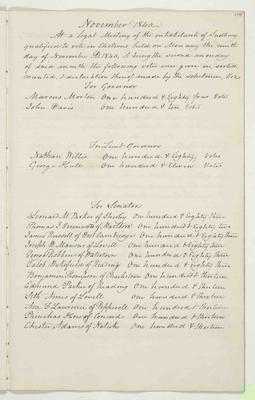 November 1840.
At a legal Meeting of the inhabitants of Sudbury
qualified to vote in Elections held on Monday the ninth
day of November A.D. 1840, it being the second monday
of said month the following votes were given in, sorted,
counted, & declaration thereof made by the selectmen, Viz
For Governor
Marcus Morton One hundred & Eighty four Votes
John Davis One hundred & ten Votes
For Lieut Governor
Nathan Willis One hundred & Eighty, Votes
George Hull One hundred & Eleven Votes
For Senators
Leonard M. Parker of Shirley One hundred & Eighty three
Thomas J. Greenwood of Marlboro One hundred & Eighty two
James Russell of West Cambridge One hundred & Eighty three
Joseph W. Mansur of Lowell One hundred & Eighty three
Josiah Robbins of Watertown One hundred & Eighty three
Caleb Wakefield of Reading One hundred & Eighty three
Benjamin Thompson of Charlestown One hundred & thirteen
Edmund Parker of Reading One hundred & thirteen
Seth Ames of Lowell One hundred & thirteen
Asa F. Lawrence of Pepperell One hundred & thirteen
Phinehas How of Concord One hundred & thirteen
Chester Adams of Natick One hundred & thirteen